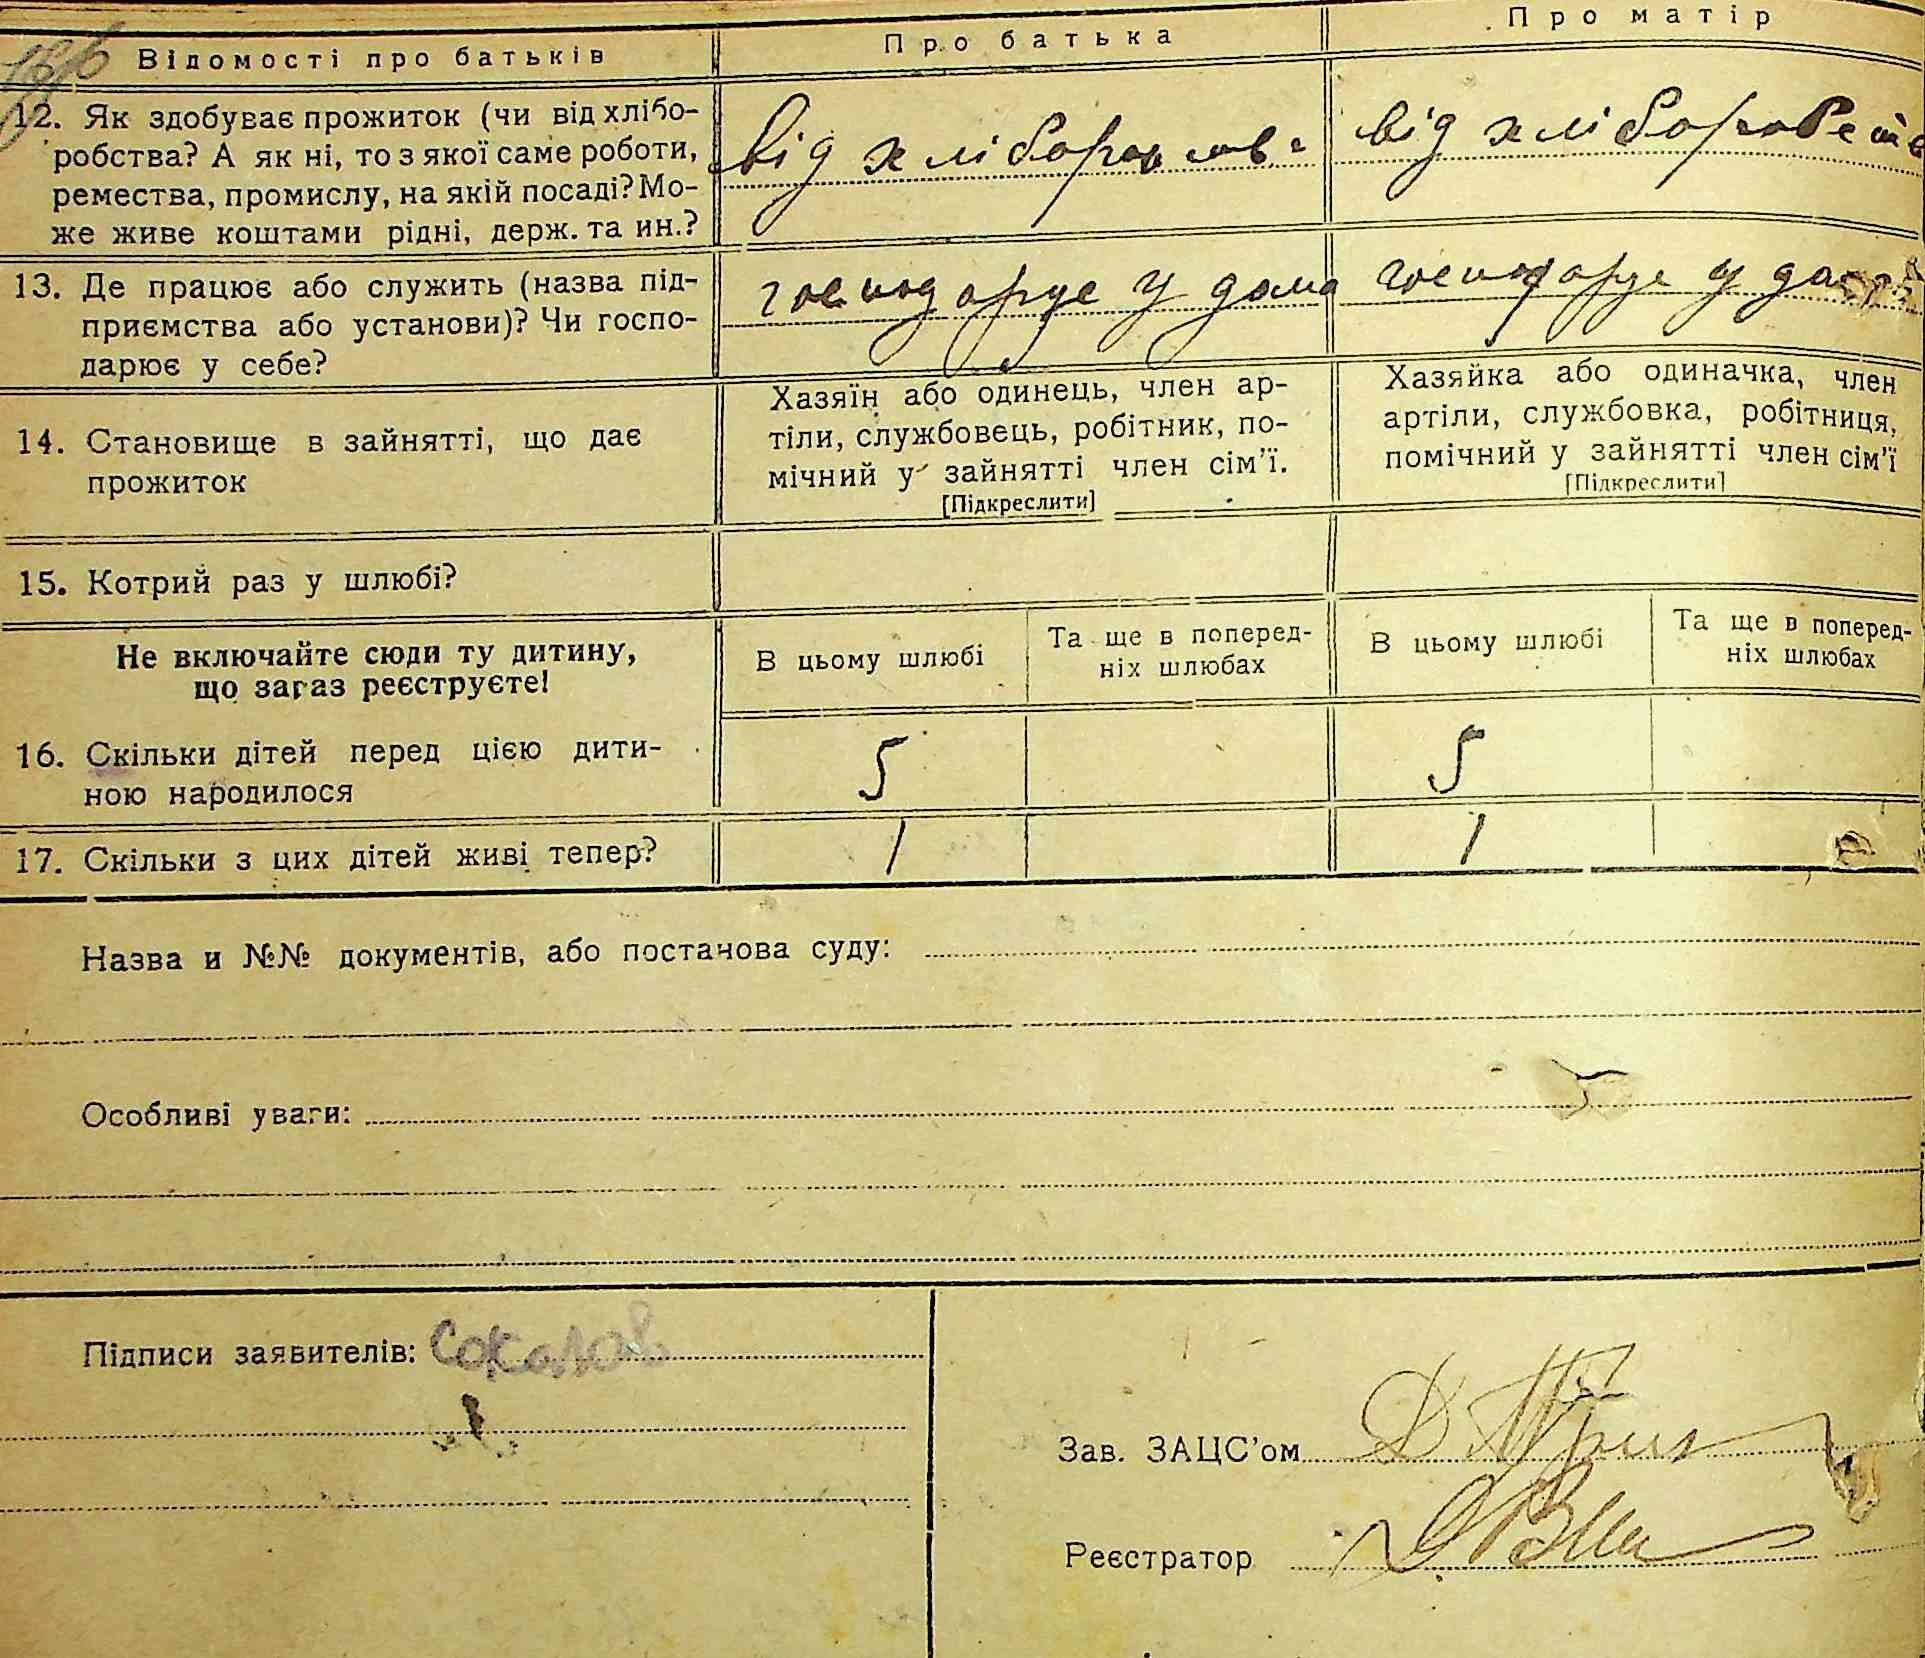 Відомості про батьків
Про батька
Про матір
12. Як здобуває прожиток (чи від хлібо-
робства? А як ні, то з якої саме роботи,
ремества, промислу, на якій посаді? Мо-
же живе коштами рідні, держ. та ин.?
від хліборобства
від хліборобств
13. Де працює або служить (назва під-
приємства або установи)? Чи госпо-
дарює у себе?
господарує у дома
господарує у дома
14. Становище в зайнятті, що дає
прожиток
Хазяїн або одинець, член ар-
тіли, службовець, робітник, по-
мічний у зайнятті член сім’ї.
[Підкреслити]
Хазяйка або одиначка, член
артіли, службовка, робітниця,
помічний у зайнятті член сім’ї
[Підкреслити]
15. Котрий раз у шлюбі?
Не включайте сюди ту дитину,
що зараз реєструєте!
В цьому шлюбі
Та ще в поперед-
ніх шлюбах
В цьому шлюбі
Та ще в поперед-
ніх шлюбах
16. Скільки дітей перед цією дити-
ною народилося
5
5
17. Скільки з цих дітей живі тепер?
1
1
Назва и №№ документів, або постанова суду:
Особливі уваги:
Підписи заявителів: Соколов
Зав. ЗАЦС’ом
Реєстратор